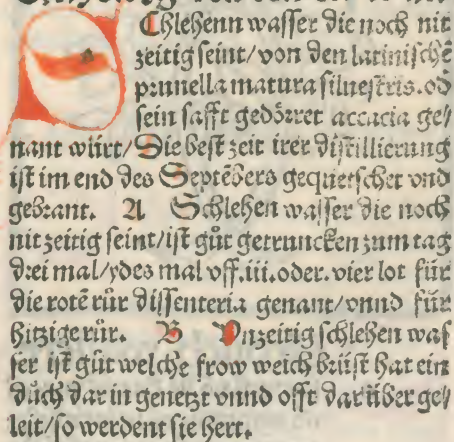 Chlehenn wasser die noch nit
zeitig seint/von den latinischē
prunella matura siluestris.od̄
sein safft gedörret accacia ge/
nant würt/Die best zeit irer distillierung
ist im end des Septēbers gequetschet vnd
gebrant. A Schlehen wasser die noch
nit zeitig seint/ist gůt getruncken zum tag
drei mal/ydes mal vff.iii.oder.vier lot für
die rotē růr dissenteria genant/vnnd für
hitzige růr. B Vnzeitig schlehen was
ser ist gůt welche frow weich brüst hat ein
důch dar in genetzt vnnd offt darüber ge/
leit/so werdent sie hert.